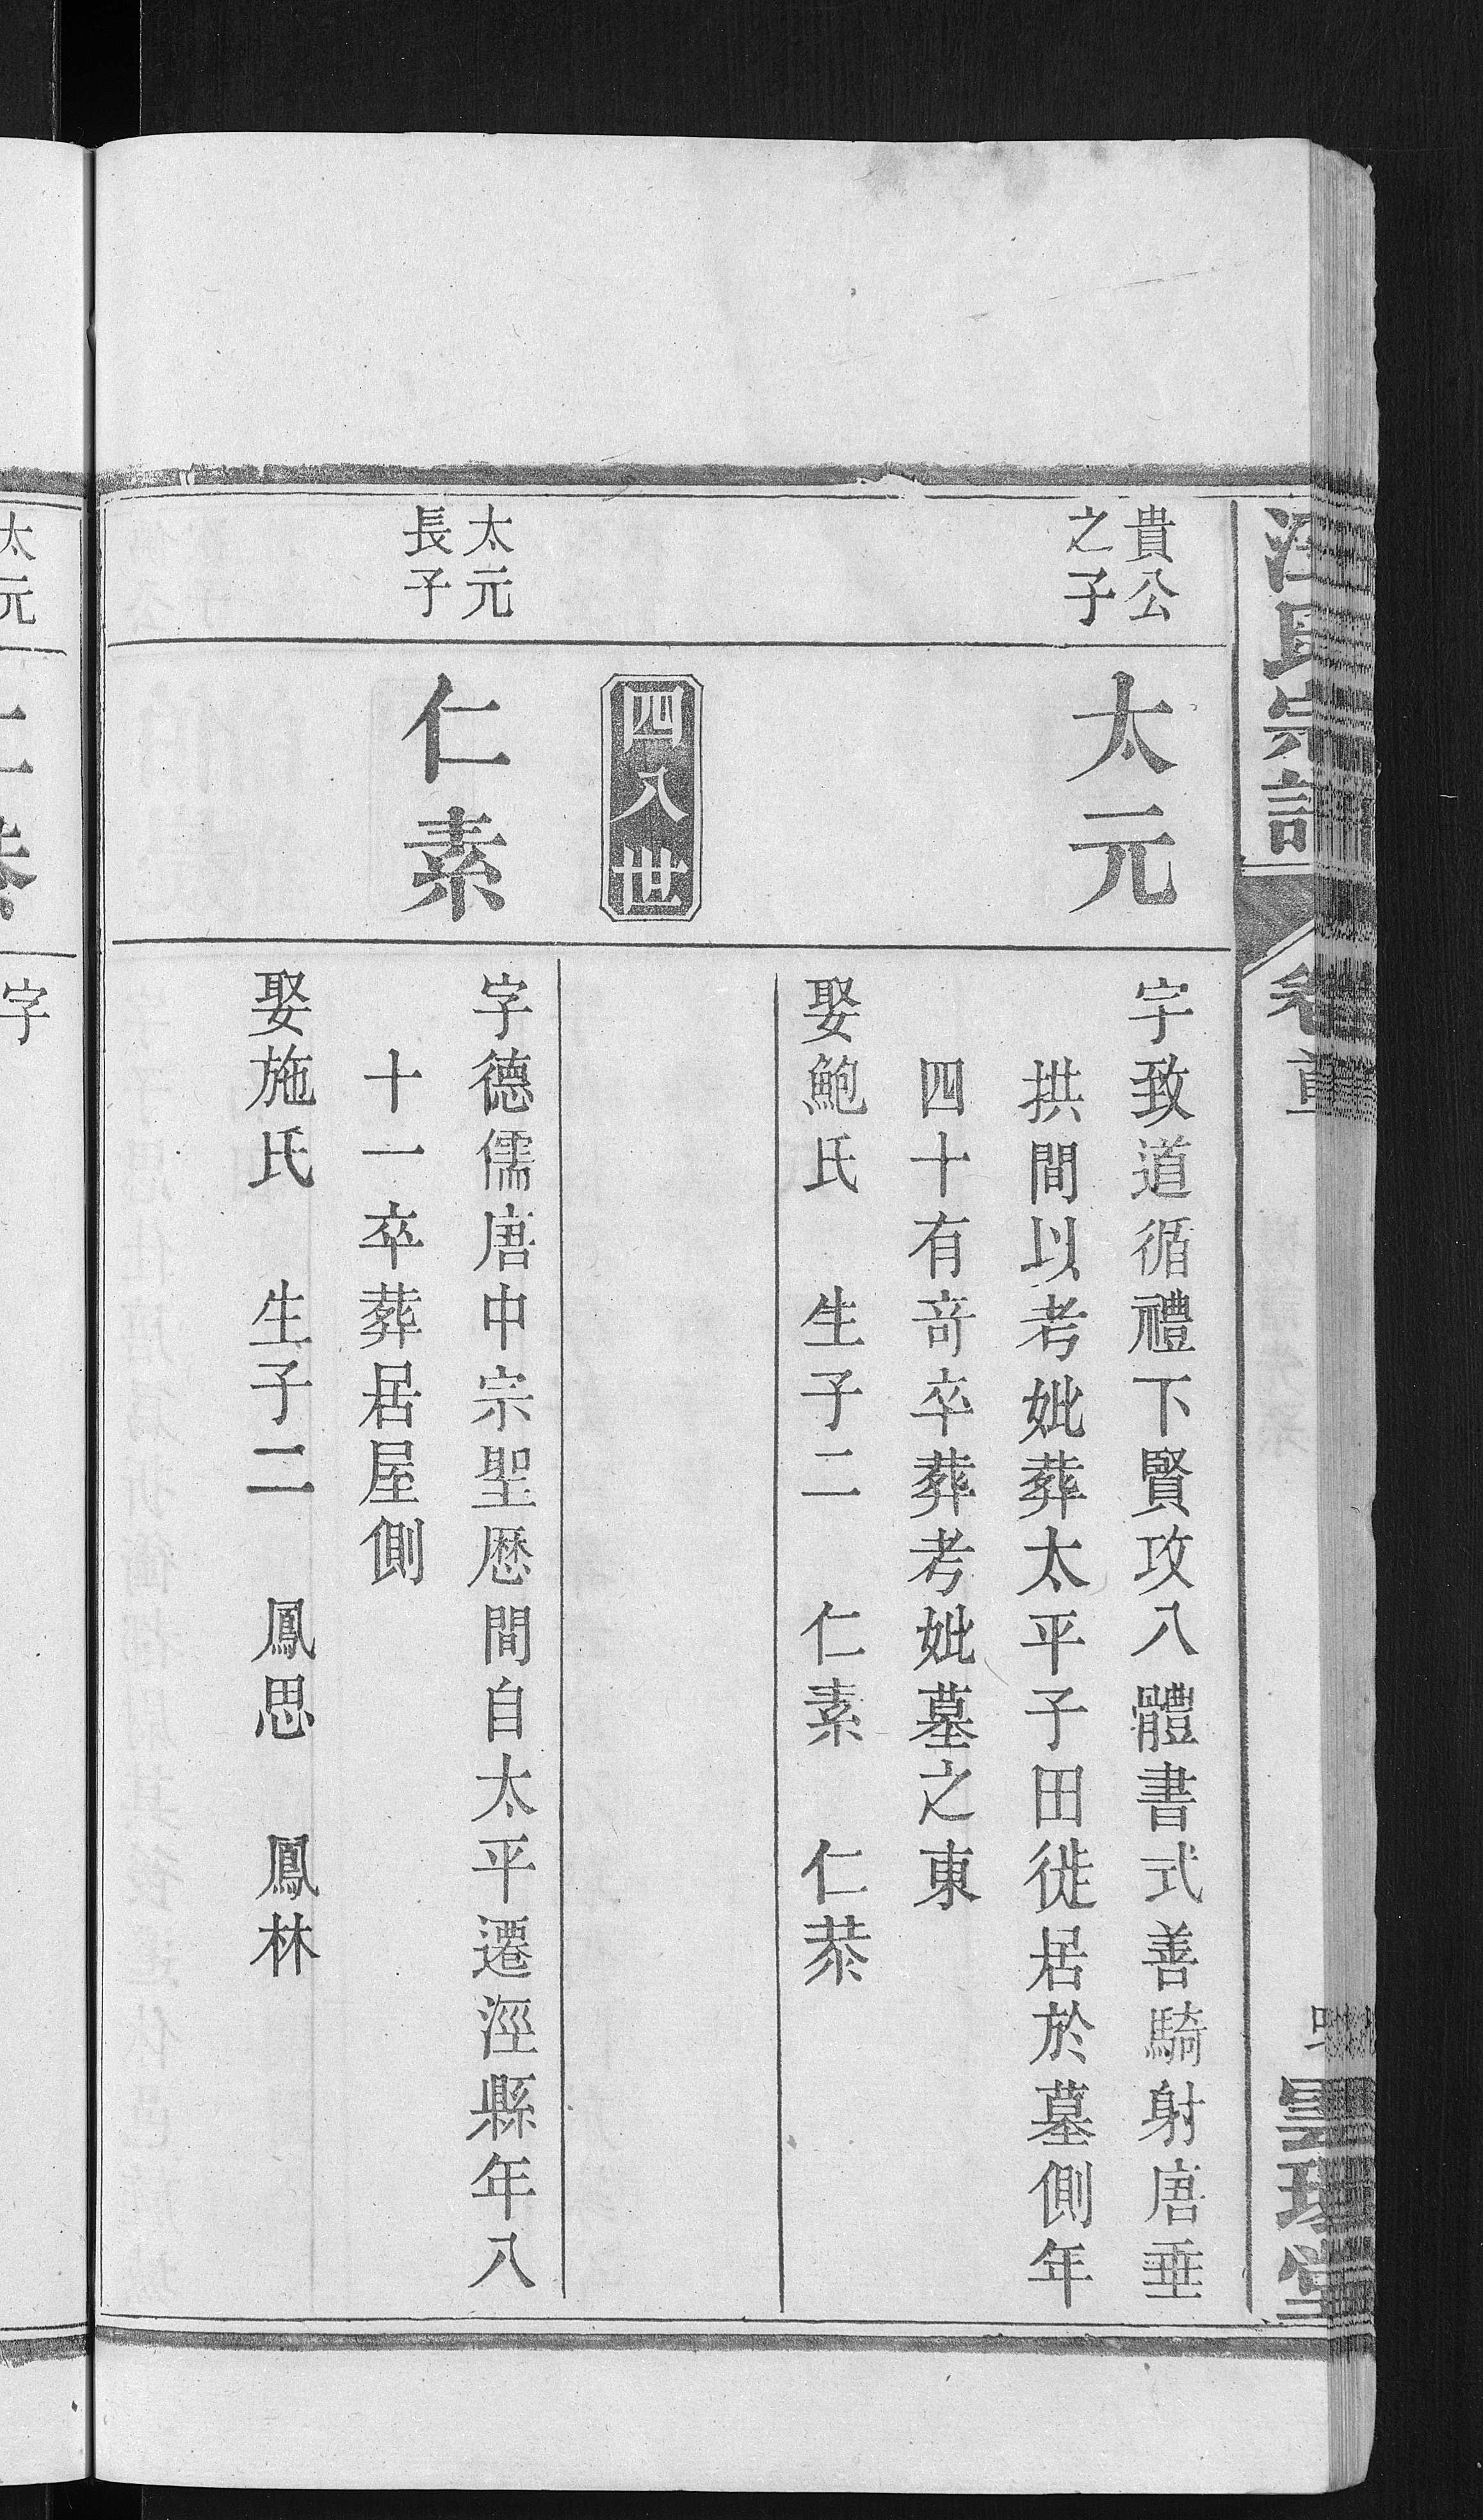 汪氏宗譜
卷首
貴公
之子
太元
字致道循禮下賢攻八體書式善騎射唐垂
拱間以考妣葬太平子田徙居於墓側年
四十有竒卒葬考妣墓之東
娶鮑氏 生子二 仁素 仁恭
四八世
太元
長子
仁素
字德儒唐中宗聖厯間自太平遷涇縣年八
十一卒葬居屋側
娶施氏 生子二 鳳思 鳳林
太元
字